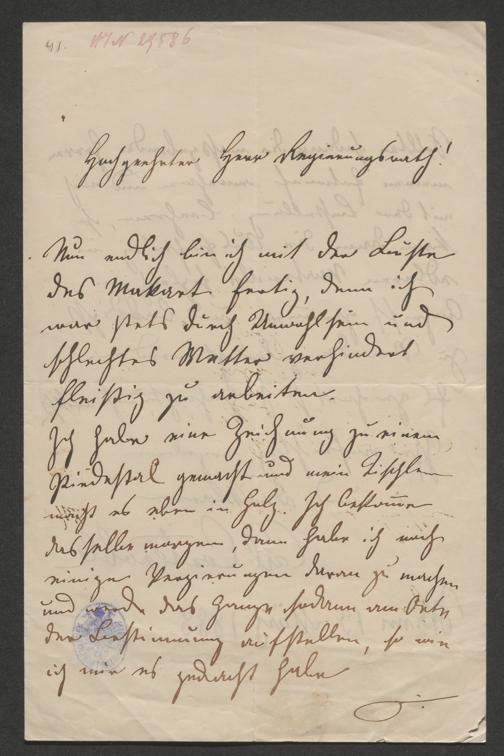 41.
HIN 29586
Hochgeehrter Herr Regierungsrath!
Nun endlich bin ich mit der Büste
des Makart fertig, denn ich
war stets durch Unwohlsein und
schlechtes Wetter verhindert
fleißig zu arbeiten.
Ich habe eine Zeichnung zu einem
Piedestal gemacht und mein Tischler
macht es eben in Holz. Ich bekomme
dasselbe morgen, dann habe ich noch
einige Verzierungen daran zu machen
und werde das Ganze sodann am Orte
der Bestimmung aufstellen, so wie
ich mir es gedacht habe